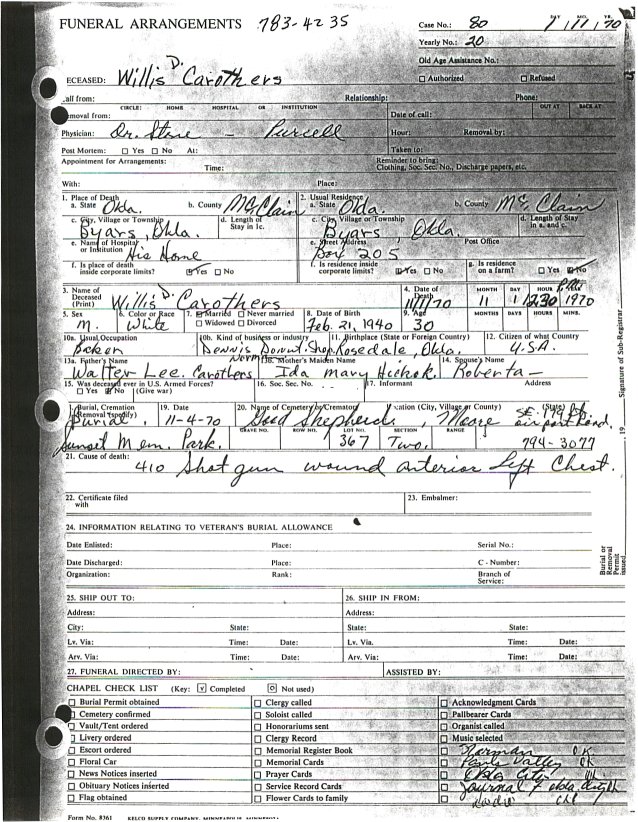 FUNERAL ARRANGEMENTS 783-4235 Case No.: 80 DAY MO. YR. 1/11/70
Yearly No.: 20
Old Age Assistance No.:
DECEASED: Willis D. Carothers Authorized Refused
Call from: Relationship: Phone:
CIRCLE: HOME HOSPITAL OR INSTITUTION OUT AT BACK AT
Removal from: Date of call:
Physician: Dr. Stone - Purcell Hour: Removal by:
Post Mortem: Yes No At: Taken to:
Appointment for Arrangements: Reminder to bring:
Time: Clothing, Soc. Sec. No., Discharge papers, etc.
With: Place:
1. Place of Death 2. Usual Residence
a. State Okla. b. County McClain a. State Okla. b. County McClain
c. City, Village or Township d. Length of Stay in 1c. c. City, Village or Township d. Length of Stay in a. and c.
Byars, Okla. Byars, Okla.
e. Name of Hospital or Institution His Home e. Street Address Box 205 Post Office
f. Is place of death inside corporate limits? Yes No f. Is residence inside corporate limits? Yes No g. Is residence on a farm? Yes No
3. Name of Deceased (Print) Willis D. Carothers 4. Date of Death 11/1/70 MONTH DAY HOUR 11 1 1230 1970
5. Sex 6. Color or Race 7. Married Never married 8. Date of Birth 9. Age MONTHS DAYS HOURS MINS.
M. White Widowed Divorced Feb. 21, 1940 30
10a. Usual Occupation 10b. Kind of business or industry 11. Birthplace (State or Foreign Country) 12. Citizen of what Country
Baker Dennis Donut Shop Norm Rosedale, Okla. U.S.A.
13a. Father's Name 13b. Mother's Maiden Name 14. Spouse's Name
Walter Lee. Carothers Ida Mary Hickok Roberta -
15. Was deceased ever in U.S. Armed Forces? 16. Soc. Sec. No. 17. Informant Address
Yes No (Give war)
18. Burial, Cremation Removal (specify) 19. Date 20. Name of Cemetery or Crematory Location (City, Village or County)
Burial. 11-4-70 Good Shepherd, Moore
Sunset Mem. Park. GRAVE NO. ROW NO. LOT NO. 367 SECTION Two. RANGE 794-3077
21. Cause of death: 410 Shot gun wound anterior Left Chest.
22. Certificate filed with 23. Embalmer:
24. INFORMATION RELATING TO VETERAN'S BURIAL ALLOWANCE
Date Enlisted: Place: Serial No.:
Date Discharged: Place: C - Number:
Organization: Rank: Branch of Service:
25. SHIP OUT TO: 26. SHIP IN FROM:
Address: Address:
City: State: State: State:
Lv. Via: Time: Date: Lv. Via. Time: Date:
Arv. Via: Time: Date: Arv. Via: Time: Date:
27. FUNERAL DIRECTED BY: ASSISTED BY:
CHAPEL CHECK LIST (Key: V Completed O Not used)
Burial Permit obtained Clergy called Acknowledgment Cards
Cemetery confirmed Soloist called Pallbearer Cards
Vault/Tent ordered Honorariums sent Organist called
Livery ordered Clergy Record Music selected
Escort ordered Memorial Register Book Norman OK
Floral Car Memorial Cards Pauls Valley OK
News Notices inserted Prayer Cards Okla City
Obituary Notices inserted Service Record Cards Journal
Flag obtained Flower Cards to family
Form No. 8361 KELCO SUPPLY COMPANY, MINNEAPOLIS, MINNESOTA
Signature of Sub-Registrar
19
Burial or Removal Permit issued